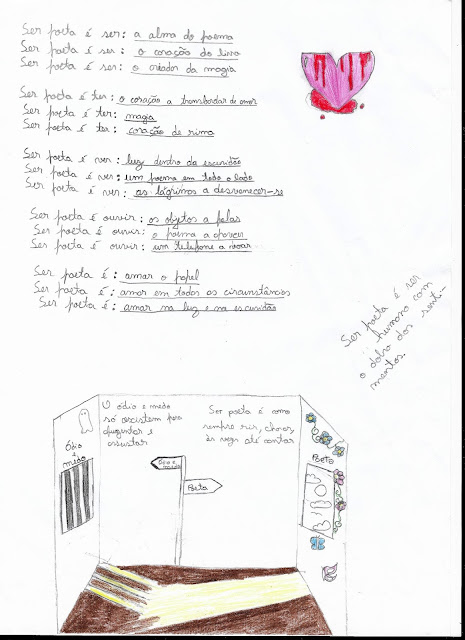 Ser poeta é ser: a alma do poema
Ser poeta é ser: o coração do livro
Ser poeta é ser: o criador da magia
Ser poeta é ter: o coração a transbordar de amor
Ser poeta é ter: magia
Ser poeta é ter: coração de rima
Ser poeta é ver: luz dentro da escuridão
Ser poeta é ver: um poema em todo o lado
Ser poeta é ver: as lágrimas a desvanecer-se
Ser poeta é ouvir: os objetos a falar
Ser poeta é ouvir: o poema a
Ser poeta é ouvir: um telefone a voar
Ser poeta é: amar o papel
Ser poeta é: amor em todas as circunstâncias
Ser poeta é: amar na luz e na escuridão
Ser poeta é ser
humano com
o dobro dos senti-
mentos.
O ódio e medo
só existem para
afugentar e
assustar
Ser poeta é como
sempre rir, chorar,
às vezes até cantar
Ódio
e
medo
Ódio e
medo
Poeta
Poeta